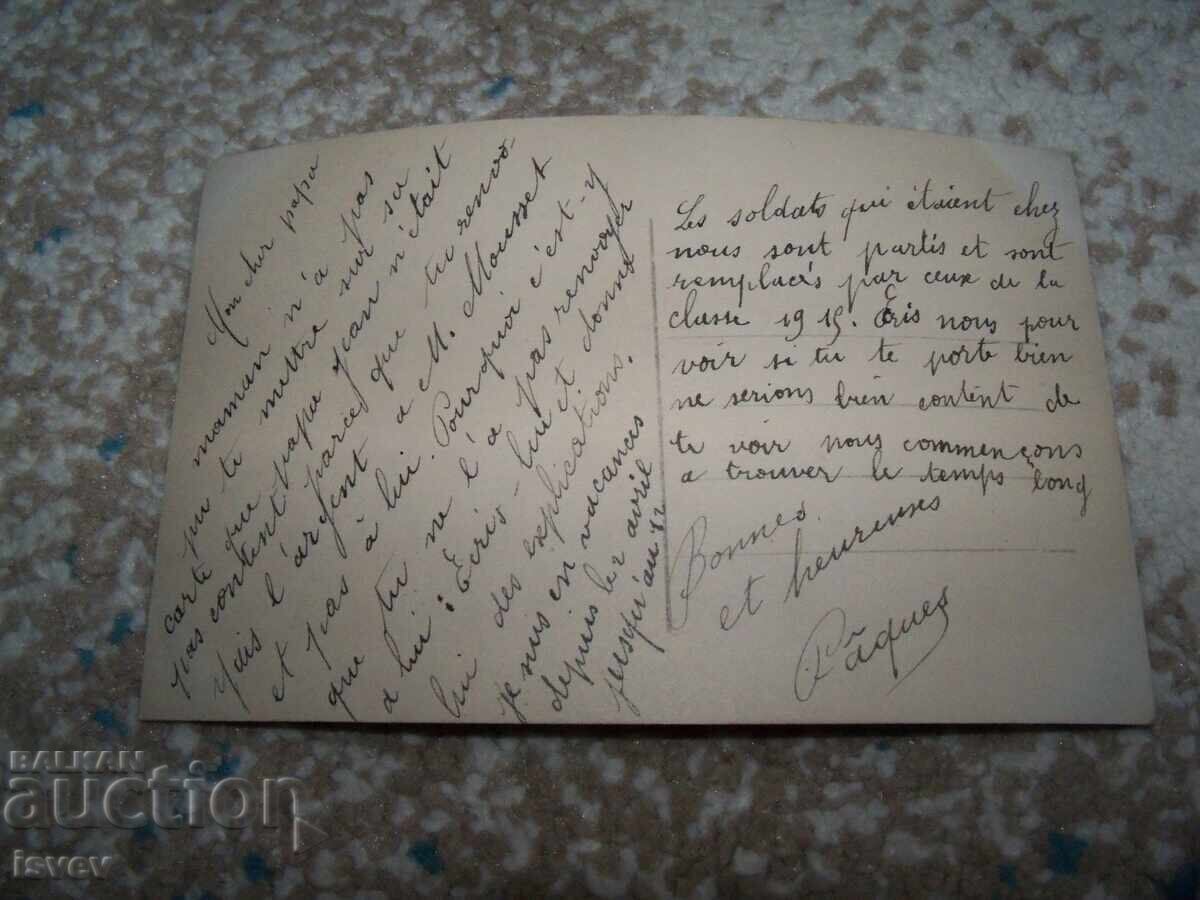 Mon cher papa
maman n'a pas
pu te mettre sur sa
carte que papa Jean n'était
pas content parce que tu renvo-
yais l'argent a M. Mousset
et pas à lui. Pourquoi c'est-y
que tu ne l'a pas renvoyer
a lui. Ecris-lui et donne
lui des explications.
je suis en vacances
depuis le 2 avril
jusqu'au 12
Les soldats qui étaient chez
nous sont partis et sont
remplacés par ceux de la
classe 1915. Ecris nous pour
voir si tu te porte bien
ne serions bien content de
te voir nous commençons
a trouver le temps long
Bonnes
et heureuses
Pâques
BALKAN
auction
isvev